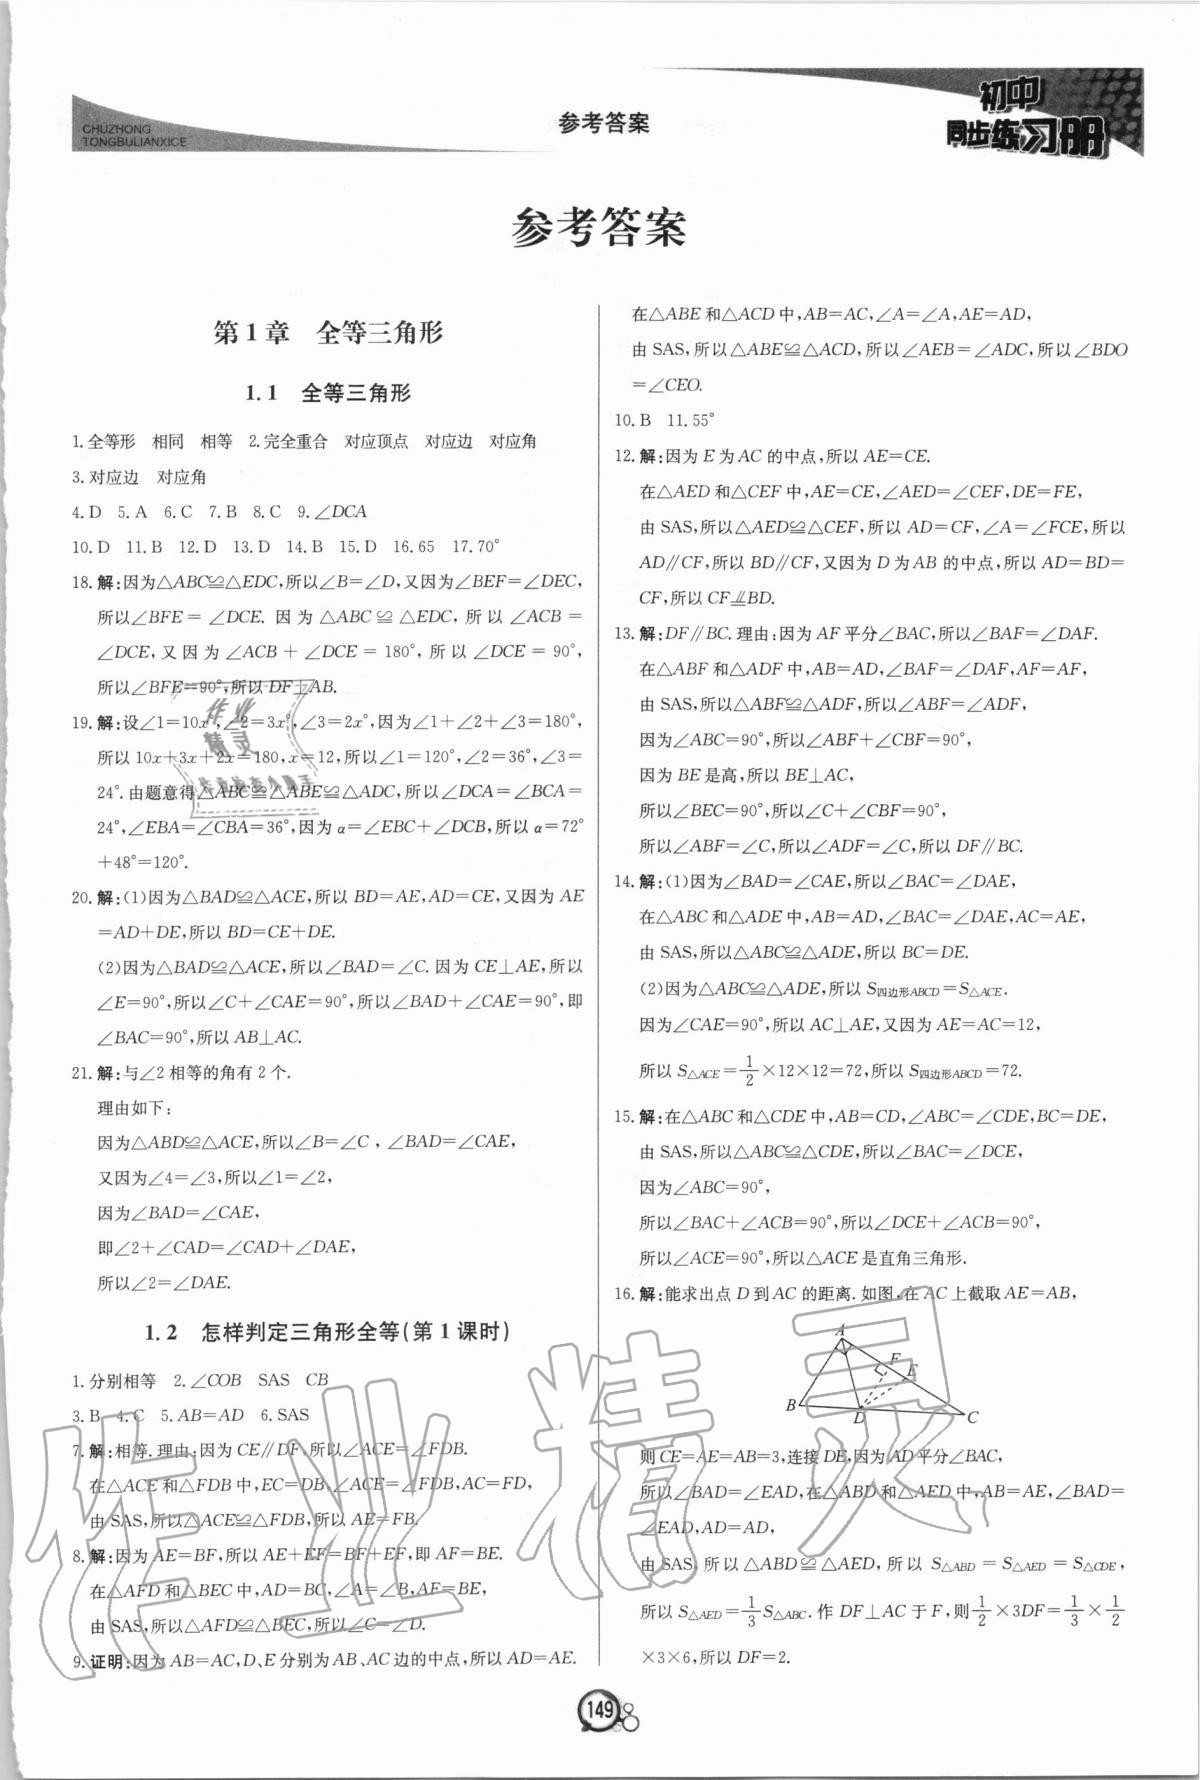 CHUZHONG
TONGBULIANXICE
参考答案
初中
同步练习册
参考答案
第1章 全等三角形
1.1 全等三角形
1.全等形 相同 相等 2.完全重合 对应顶点 对应边 对应角
3.对应边 对应角
4.D 5.A 6.C 7.B 8.C 9.∠DCA
10.D 11.B 12.D 13.D 14.B 15.D 16.65 17.70°
18.解:因为△ABC≌△EDC,所以∠B=∠D,又因为∠BEF=∠DEC,
所以∠BFE=∠DCE.因为△ABC≌△EDC,所以∠ACB=
∠DCE,又因为∠ACB+∠DCE=180°,所以∠DCE=90°,
所以∠BFE=90°,所以DF⊥AB.
19.解:设∠1=10x°,∠2=3x°,∠3=2x°,因为∠1+∠2+∠3=180°,
所以10x+3x+2x=180,x=12,所以∠1=120°,∠2=36°,∠3=
24°.由题意得△ABC≌△ABE≌△ADC,所以∠DCA=∠BCA=
24°,∠EBA=∠CBA=36°,因为α=∠EBC+∠DCB,所以α=72°
+48°=120°.
20.解:(1)因为△BAD≌△ACE,所以BD=AE,AD=CE,又因为AE
=AD+DE,所以BD=CE+DE.
(2)因为△BAD≌△ACE,所以∠BAD=∠C.因为CE⊥AE,所以
∠E=90°,所以∠C+∠CAE=90°,所以∠BAD+∠CAE=90°,即
∠BAC=90°,所以AB⊥AC.
21.解:与∠2相等的角有2个.
理由如下:
因为△ABD≌△ACE,所以∠B=∠C,∠BAD=∠CAE,
又因为∠4=∠3,所以∠1=∠2,
因为∠BAD=∠CAE,
即∠2+∠CAD=∠CAD+∠DAE,
所以∠2=∠DAE.
1.2 怎样判定三角形全等(第1课时)
1.分别相等 2.∠COB SAS CB
3.B 4.C 5.AB=AD 6.SAS
7.解:相等.理由:因为CE∥DF,所以∠ACE=∠FDB.
在△ACE和△FDB中,EC=DB,∠ACE=∠FDB,AC=FD,
由SAS,所以△ACE≌△FDB,所以AE=FB.
8.解:因为AE=BF,所以AE+EF=BF+EF,即AF=BE.
在△AFD和△BEC中,AD=BC,∠A=∠B,AF=BE,
由SAS,所以△AFD≌△BEC,所以∠C=∠D.
9.证明:因为AB=AC,D、E分别为AB、AC边的中点,所以AD=AE.
在△ABE和△ACD中,AB=AC,∠A=∠A,AE=AD,
由SAS,所以△ABE≌△ACD,所以∠AEB=∠ADC,所以∠BDO
=∠CEO.
10.B 11.55°
12.解:因为E为AC的中点,所以AE=CE.
在△AED和△CEF中,AE=CE,∠AED=∠CEF,DE=FE,
由SAS,所以△AED≌△CEF,所以AD=CF,∠A=∠FCE,所以
AD∥CF,所以BD∥CF,又因为D为AB的中点,所以AD=BD=
CF,所以CF⫫BD.
13.解:DF∥BC.理由:因为AF平分∠BAC,所以∠BAF=∠DAF.
在△ABF和△ADF中,AB=AD,∠BAF=∠DAF,AF=AF,
由SAS,所以△ABF≌△ADF,所以∠ABF=∠ADF,
因为∠ABC=90°,所以∠ABF+∠CBF=90°,
因为BE是高,所以BE⊥AC,
所以∠BEC=90°,所以∠C+∠CBF=90°,
所以∠ABF=∠C,所以∠ADF=∠C,所以DF∥BC.
14.解:(1)因为∠BAD=∠CAE,所以∠BAC=∠DAE,
在△ABC和△ADE中,AB=AD,∠BAC=∠DAE,AC=AE,
由SAS,所以△ABC≌△ADE,所以BC=DE.
(2)因为△ABC≌△ADE,所以S四边形ABCD=S△ACE.
因为∠CAE=90°,所以AC⊥AE,又因为AE=AC=12,
所以S△ACE=1/2×12×12=72,所以S四边形ABCD=72.
15.解:在△ABC和△CDE中,AB=CD,∠ABC=∠CDE,BC=DE,
由SAS,所以△ABC≌△CDE,所以∠BAC=∠DCE,
因为∠ABC=90°,
所以∠BAC+∠ACB=90°,所以∠DCE+∠ACB=90°,
所以∠ACE=90°,所以△ACE是直角三角形.
16.解:能求出点D到AC的距离.如图,在AC上截取AE=AB,
A
F
E
B
D
C
则CE=AE=AB=3,连接DE,因为AD平分∠BAC,
所以∠BAD=∠EAD,在△ABD和△AED中,AB=AE,∠BAD=
∠EAD,AD=AD,
由SAS,所以△ABD≌△AED,所以S△ABD=S△AED=S△CDE,
所以S△AED=1/3S△ABC.作DF⊥AC于F,则1/2×3DF=1/3×1/2
×3×6,所以DF=2.
149
作业
精灵
作业精灵